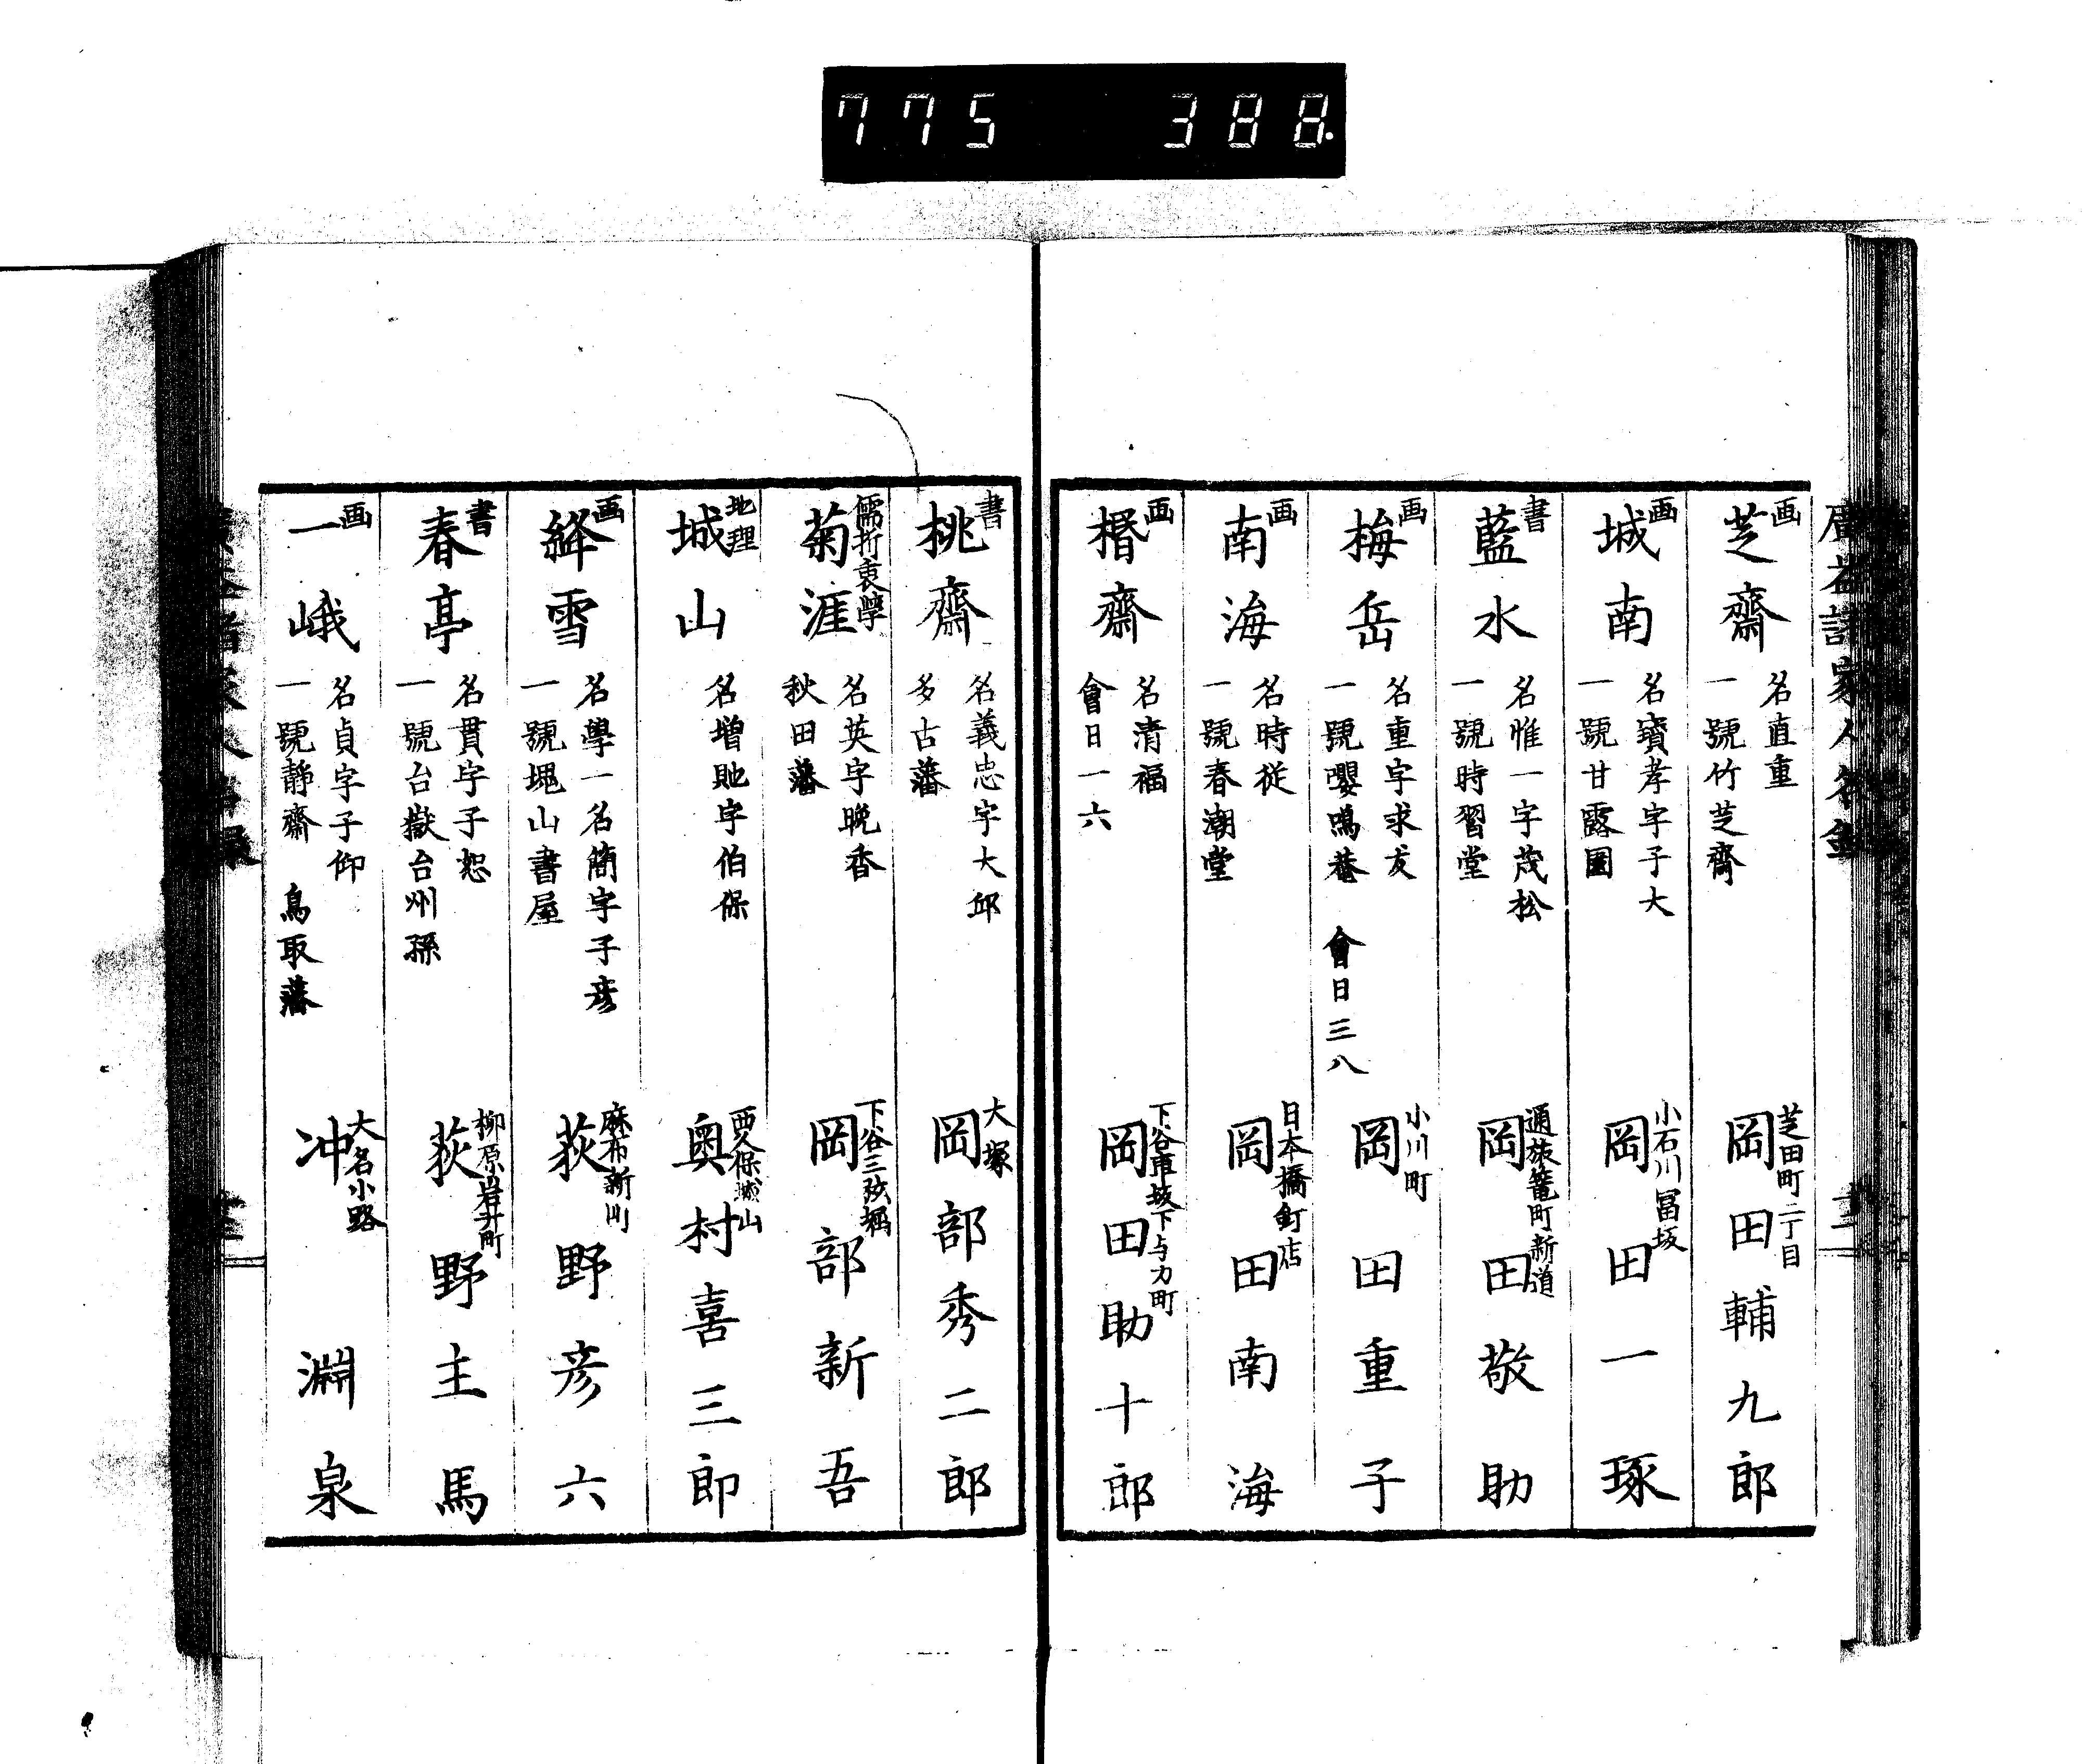 775 388
画
芝齋
名直重
一號竹芝齋
芝田町二丁目
岡田輔九郎
画
城南
名寶孝字子大
一號甘露園
小石川冨坂
岡田一琢
書
藍水
名惟一字茂松
一號時習堂
通旅篭町新道
岡田敬助
画
梅岳
名重字求友
一號嚶鳴巷 會日三八
小川町
岡田重子
画
南海
名時從
一號春潮堂
日本橋釘店
岡田南海
画
楷齋
名清福
會日一六
下谷車坂下与力町
岡田助十郎
書
桃齋
名義忠字大邱
多古藩
大塚
岡部秀二郎
儒折衷學
菊涯
名英字晩香
秋田藩
下谷三弦堀
岡部新吾
地理
城山
名増貤字伯保
西久保城山
奥村喜三郎
画
絳雪
名學一名簡字子彦
一號 山書屋
麻布新川
荻野彦六
書
春亭
名貫字子恕
一號台嶽台州孫
柳原岩井町
荻野主馬
画
一峨
名貞字子仰
一號靜齋 鳥取藩
大名小路
冲淵泉